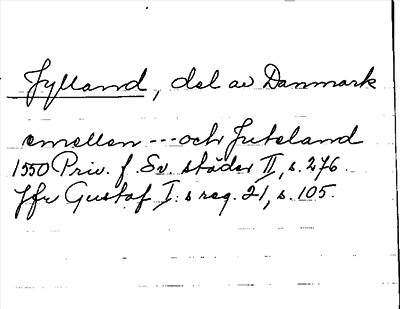 Jylland, del av Danmark
emellan --- och Juteland
1550 Priv. f. Sv. städer II, s. 276.
Jfr Gustaf I:s reg. 21, s. 105.